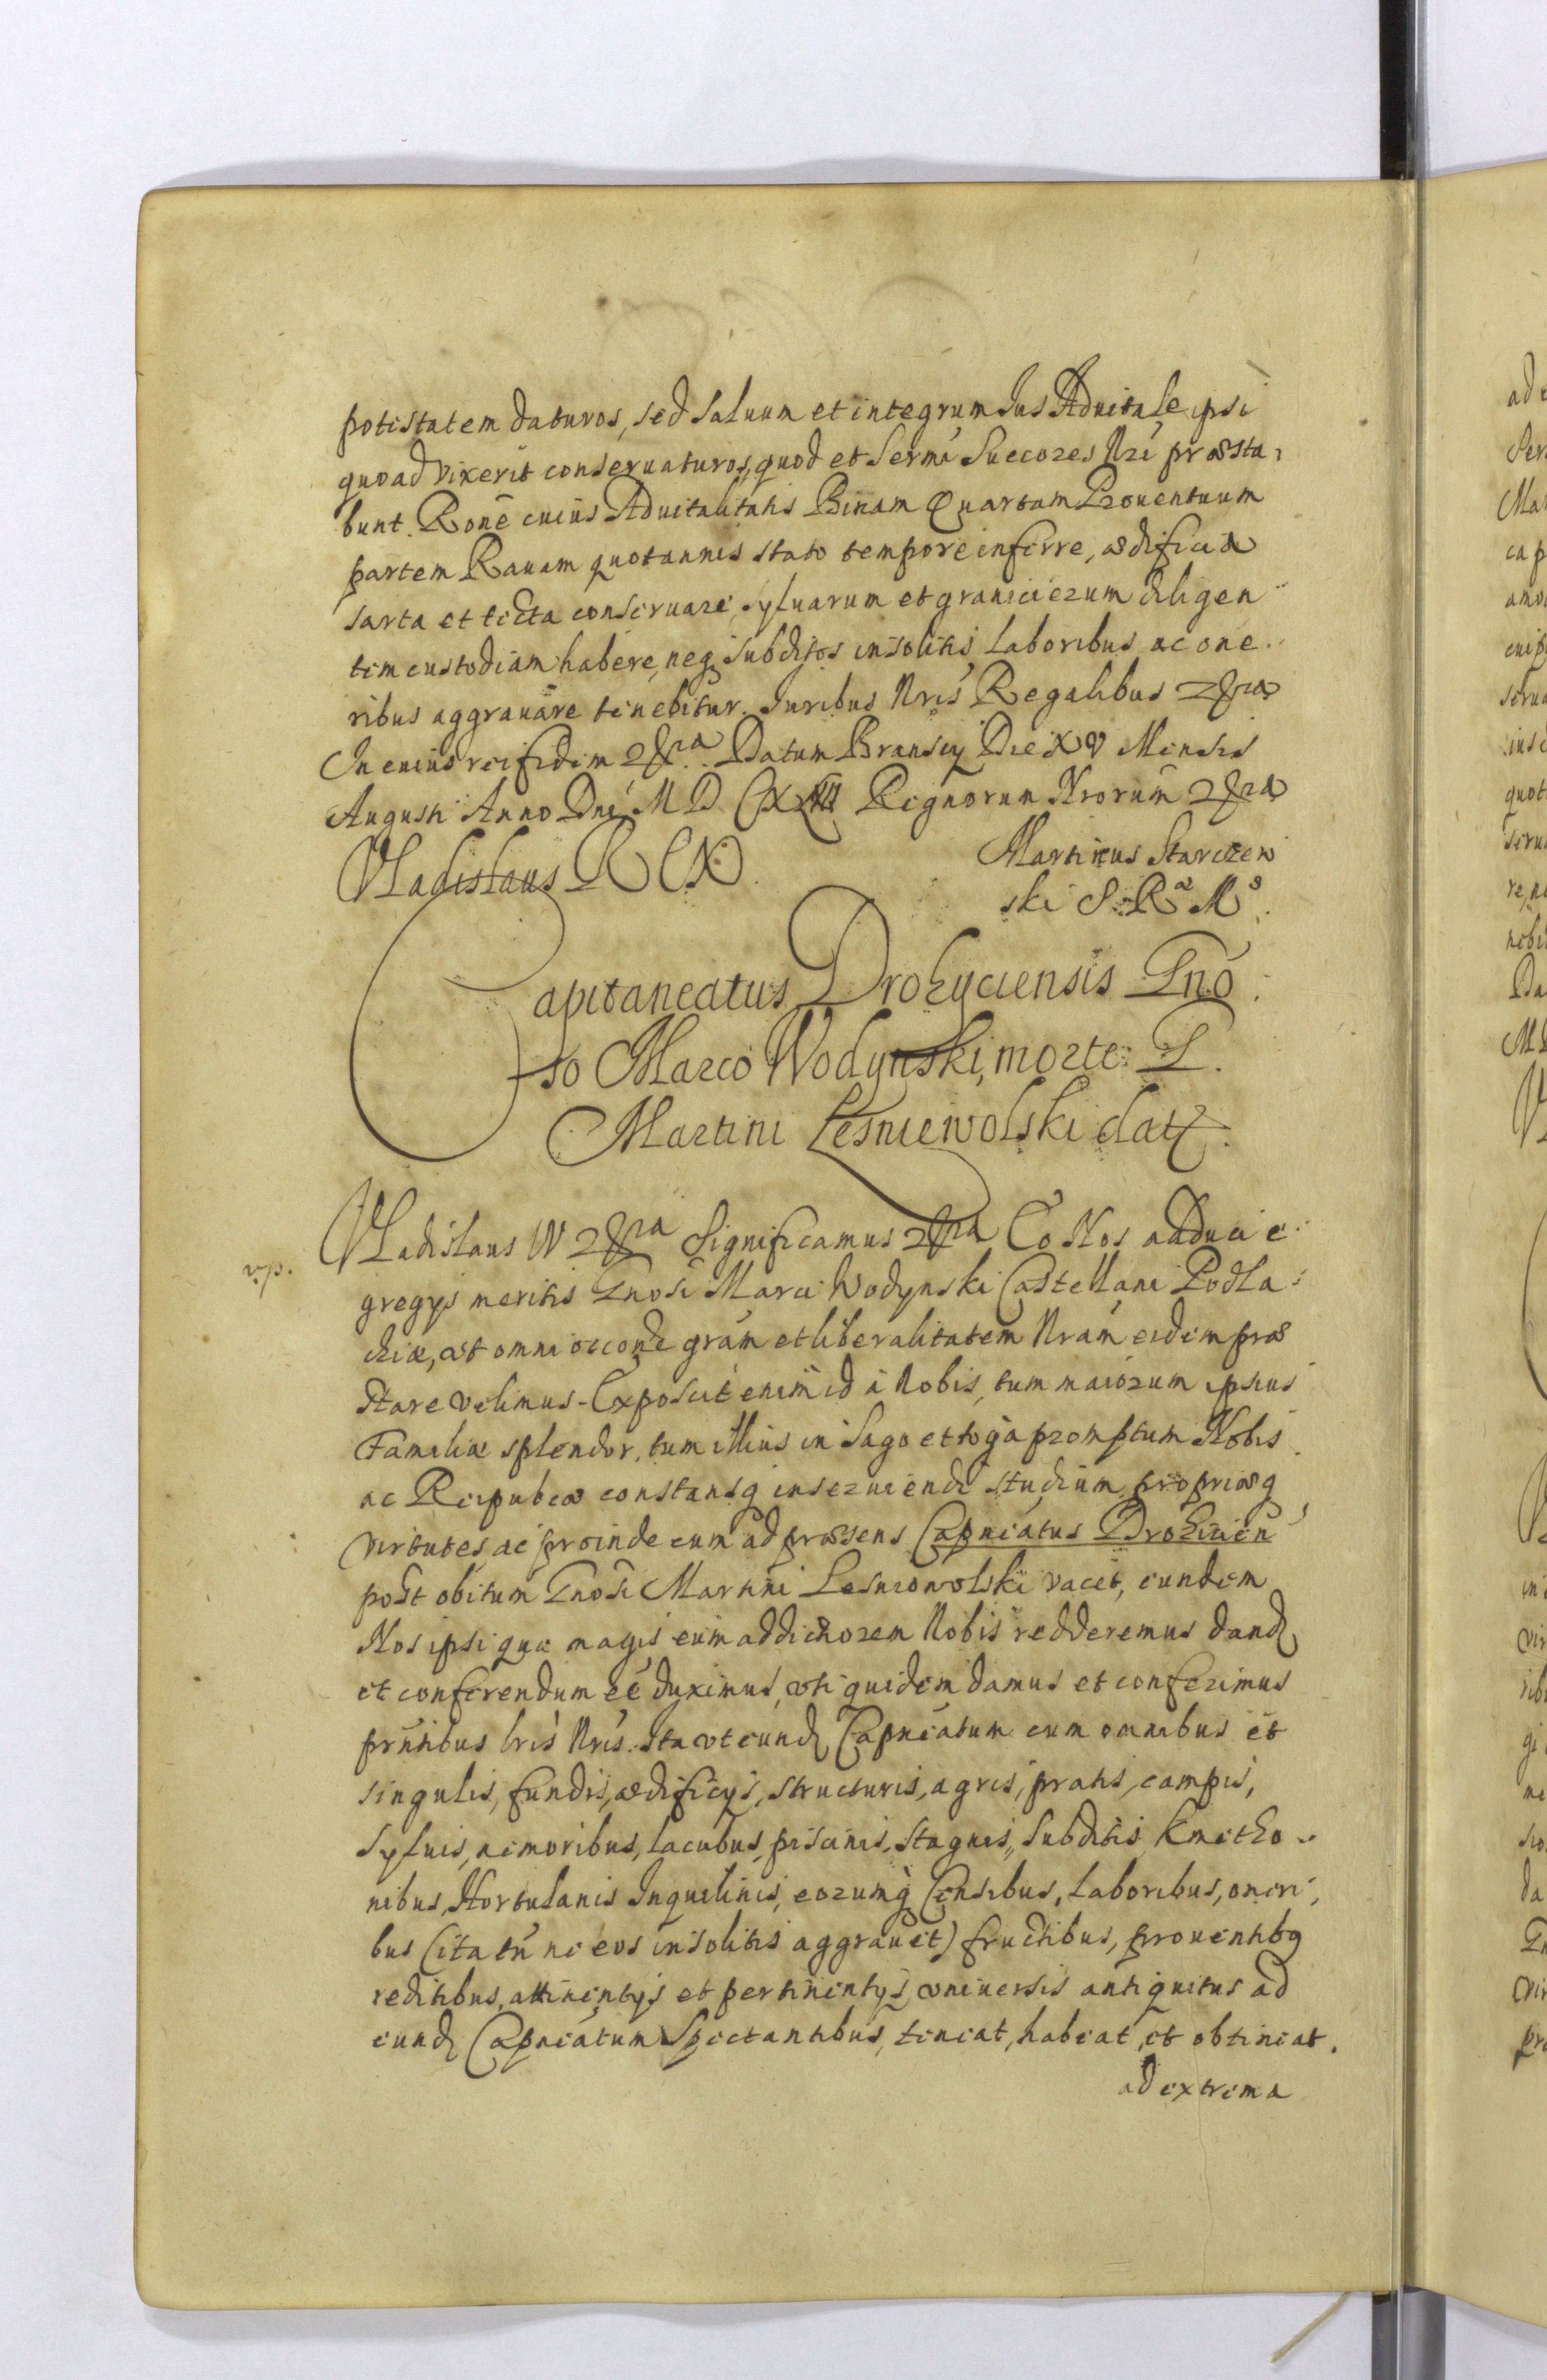 potestatem daturos, sed saluum et integrum Ius Aduitale ipsi
quoad vixerit conseruaturos, quod et Sermi Succores Nri præsta-
bunt. Rone cuius Aduitalitatis Binam Quartam Prouentuum
partem Rauam quotannis stato tempore inferre, ædificia
sarta et tecta conseruare, syluarum et granicierum diligen
tem custodiam habere, neq subditos insolitis laboribus ac one-
ribus aggrauare tenebitur. Iuribus Nris Regalibus
In cuius rei fidem Datum Bransciæ Die XV Mensis
Augusti Anno Dni M D Regnorum Nrorum
Vladislaus REX
Martinus Starczew
ski S. Ræ Ms.
Capitaneatus Drohyciensis Gno
so Marco Wodynski, morte G.
Martini Lesniewolski datq.
vp.
Vladislaus IV Significamus Eo Nos adduci e-
gregys meritis Gnosi Marci Wodynski Castellani Podla-
chiæ, vt omni occone gram et liberalitatem Nram eidem præ
stare velimus. Exposcit enim id à Nobis, tum maiorum ipsius
Familiæ splendor, tum illius in Sago et toga promptum Nobis
ac Reipubcæ constansq inseruiendi studium, propriæq
virtutes, ac proinde cum ad præsens Capneatus Drohicien
post obitum Gnosi Martini Lesniowolski vacet, eundem
Nos ipsi quæ magis eum addictiorem Nobis redderemus dand
et conferendum eé duximus, vti quidem damus et conferimus
prntibus lris Nris. Ita vt eund Capneatum cum omnibus et
singulis, fundis, ædificys, structuris, agris, pratis, campis,
syluis, nemoribus, lacubus, piscinis, stagnis, subditis Kmetho-
nibus, Hortulanis Inquilinis, eorumq Censibus, laboribus, oneri-
bus (ita tn ne eos insolitis aggrauet) fructibus, prouentibq
reditibus, attinentys et pertinentys vniuersis antiquitus ad
eund Capneatum spectantibus, teneat, habeat, et obtineat.
ad extrema